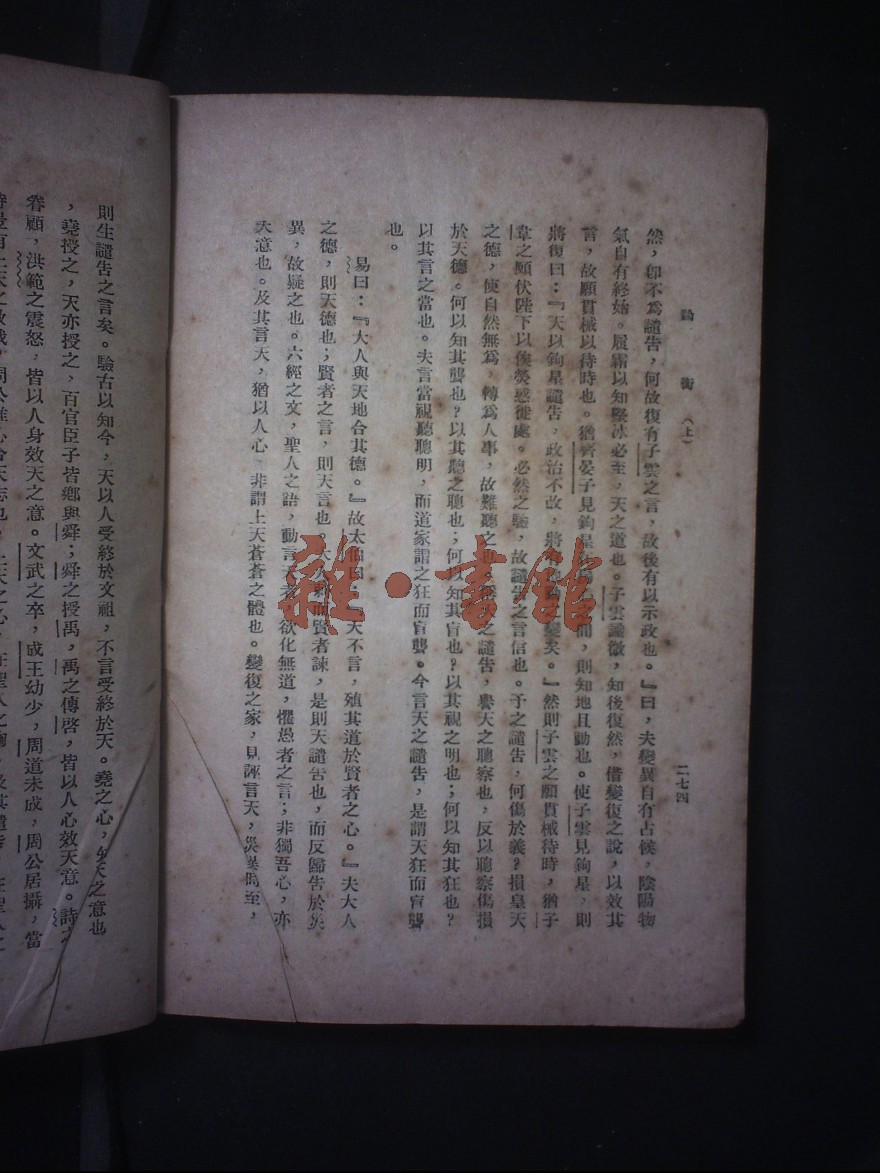 論　衡　（上）　二七四
然，卽不爲譴告，何故復有子雲之言，故後有以示政也。』曰，夫變異自有占候，陰陽物
氣自有終始。履霜以知堅冰必至，天之道也。子雲識微，知後復然，借變復之說，以效其
言，故願貫械以待時也。猶齊晏子見鉤星在房心之間，則知地且動也。使子雲見鉤星，則
將復曰：『天以鉤星譴告，政治不改，將有地動之變矣。』然則子雲之願貫械待時，猶子
韋之願伏陛下以俟熒惑徙處。必然之驗，故譴告之言信也。予之譴告，何傷於義？損皇天
之德，使自然無爲，轉爲人事，故難聽之也。稱天之譴告，譽天之聰察也，反以聰察傷損
於天德。何以知其聾也？以其聽之聰也；何以知其盲也？以其視之明也；何以知其狂也？
以其言之當也。夫言當視聽聰明，而道家謂之狂而盲聾。今言天之譴告，是謂天狂而盲聾
也。
易曰：『大人與天地合其德。』故太伯曰：『天不言，殖其道於賢者之心。』夫大人
之德，則天德也；賢者之言，則天言也。大人刺而賢者諫，是則天譴告也，而反歸告於災
異，故疑之也。六經之文，聖人之語，動言天者，欲化無道，懼愚者之言；非獨吾心，亦
天意也。及其言天，猶以人心，非謂上天蒼蒼之體也。變復之家，見誣言天，災異時至，
則生譴告之言矣。驗古以知今，天以人受終於文祖，不言受終於天。堯之心，知天之意也
，堯授之，天亦授之，百官臣子皆鄉與舜；舜之授禹，禹之傳啓，皆以人心效天意。詩之
眷顧，洪範之震怒，皆以人身效天之意。文武之卒，成王幼少，周道未成，周公居攝，當
雜·書館